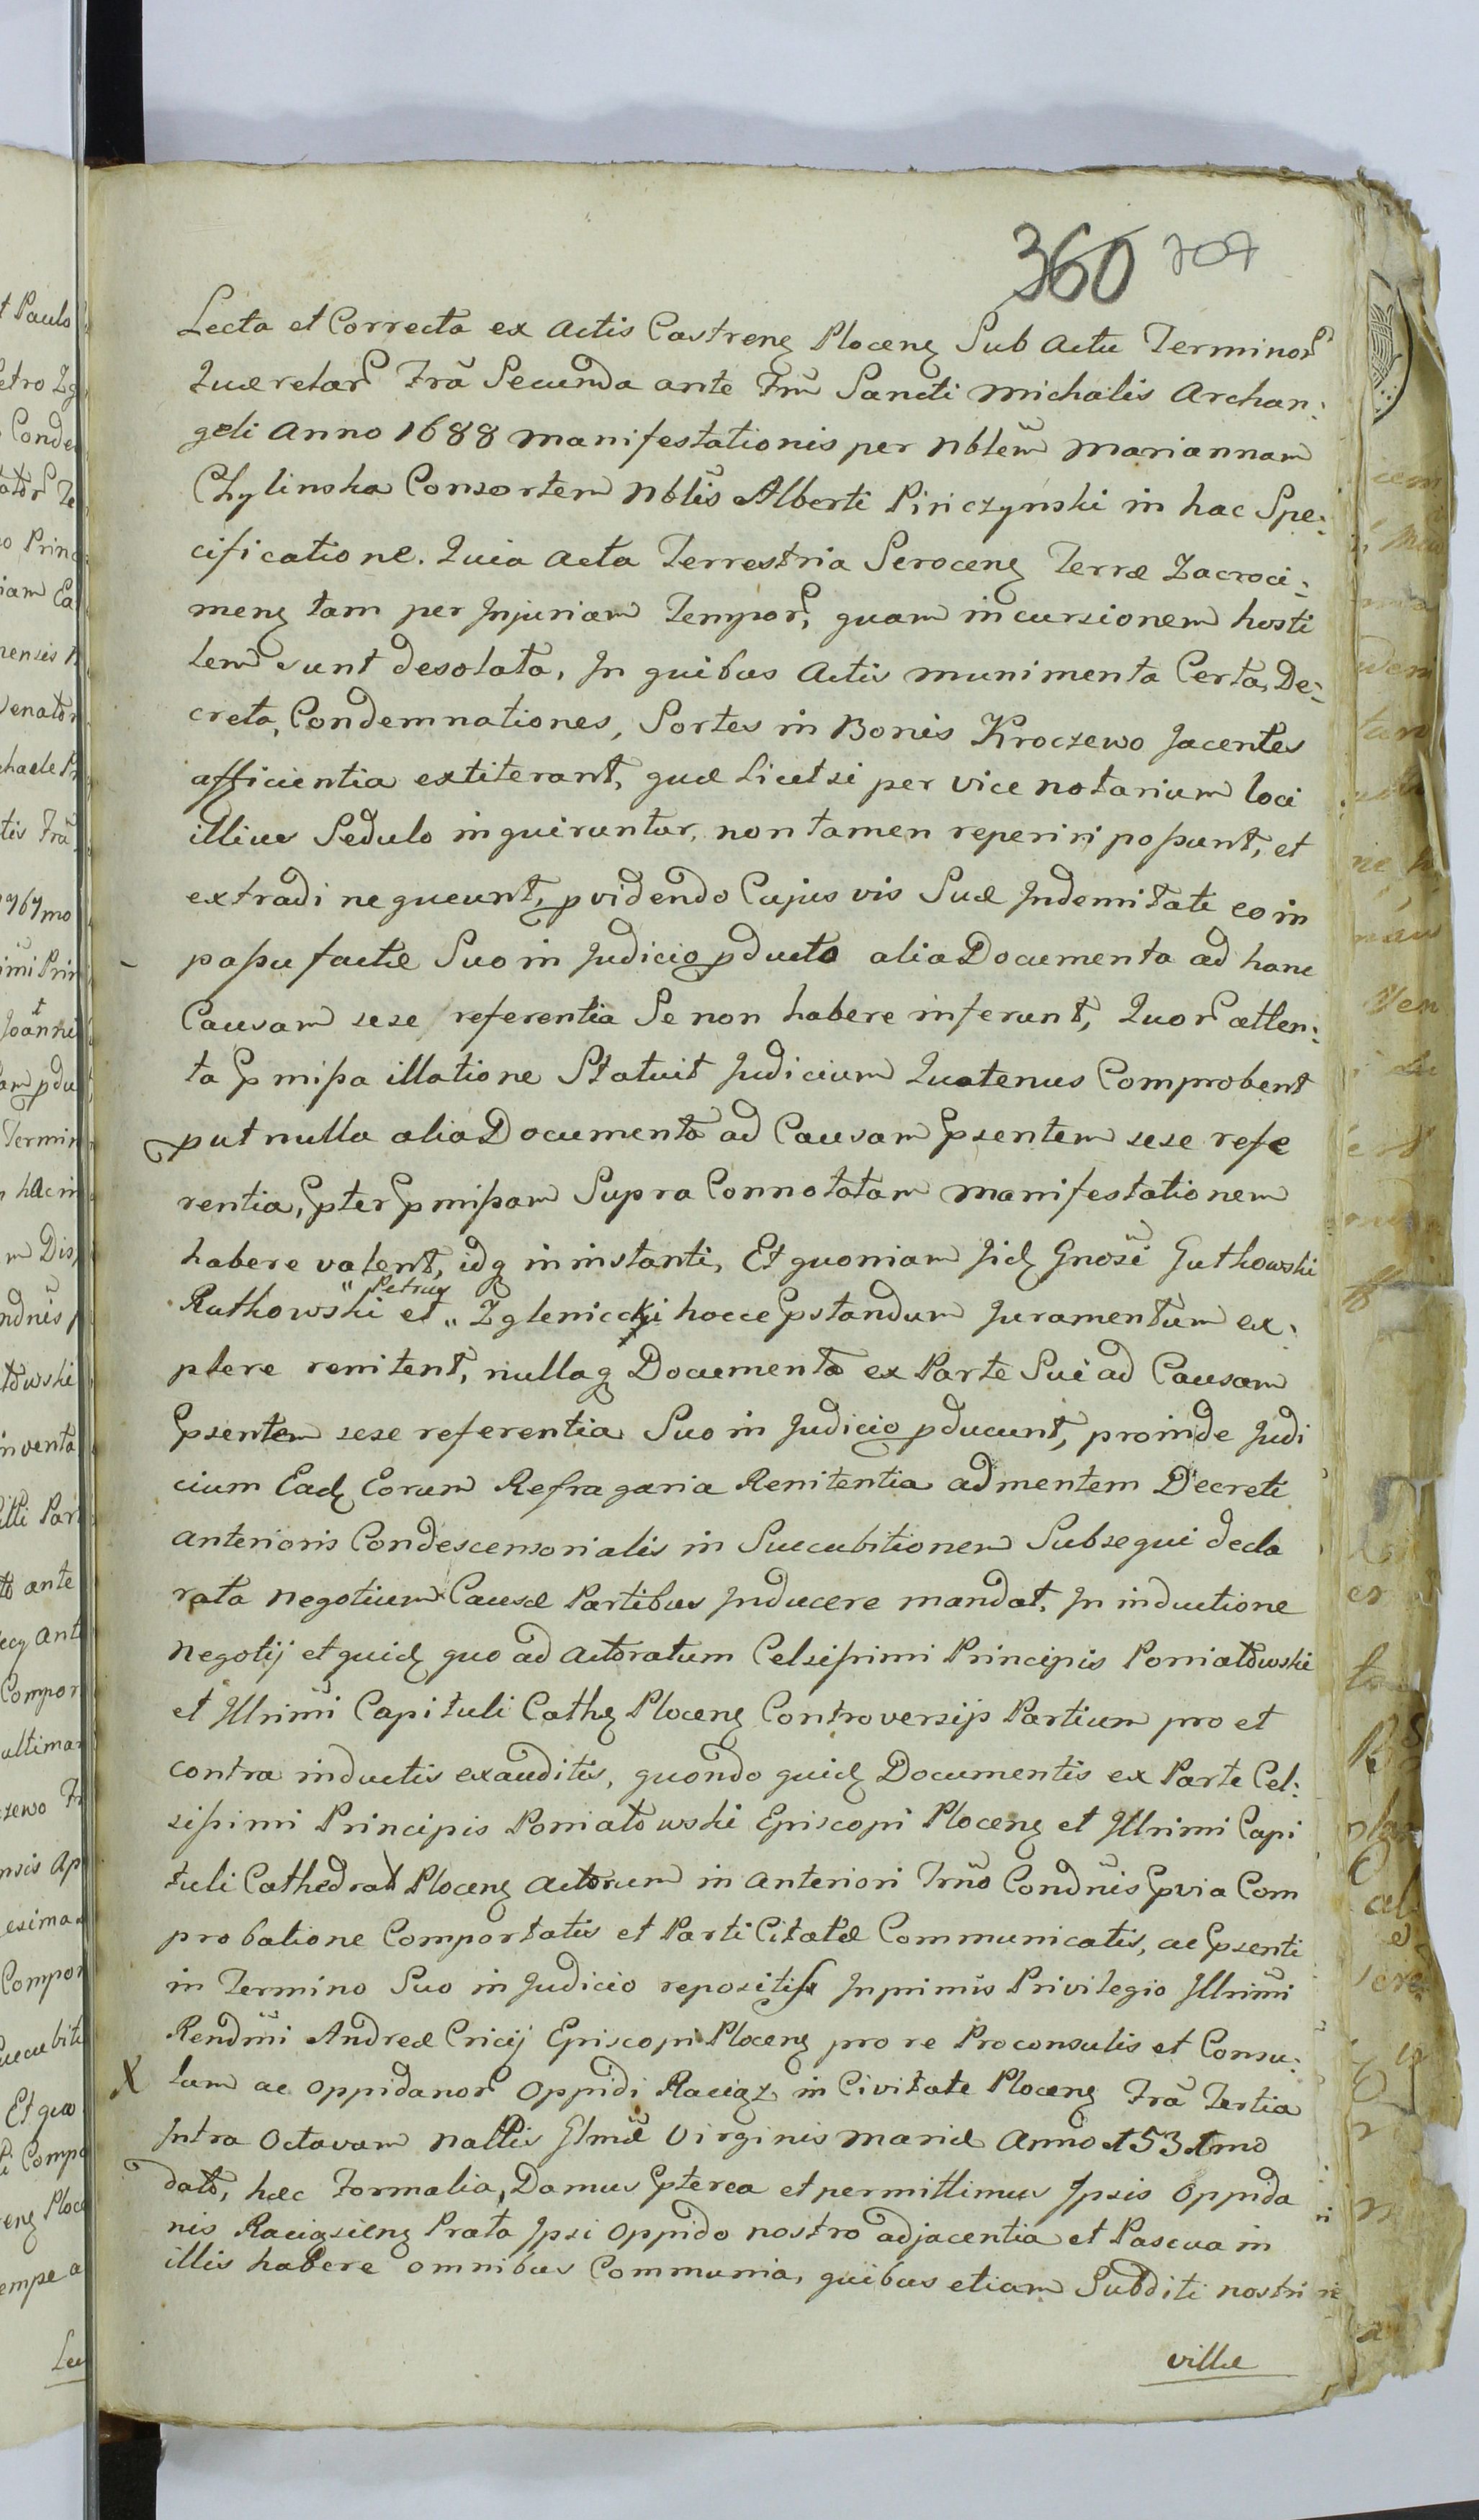 360 707
Lecta et Correcta ex Actis Castreng Ploceng Sub Actu Terminor
Querelar Fra Secunda ante Fm Sancti Michalis Archan:
geli Anno 1688 Manifestationis per Nblem Mariannam
Chylinska Consortem Nblis Alberti Pinczynski in hac Spe:
cificatione. Quia Acta Terrestria Seroceng Terræ Zacroci:
meng tam per Injuriam Tempor, quam incursionem hosti
lem sunt desolata, In quibus Actis munimenta Certa, De:
creta, Condemnationes, Sortes in Bonis Kroczewo Jacentes
afficientia extiterant, quæ licet si per vice notarium loci
illius Sedulo inquiruntur, non tamen reperiri poßunt, et
extradi nequeunt, pvidendo Cujus vis Suæ Indemitate eo in
paßu factæ Suo in Judicio pducto alia Documenta ad hanc
Causam sese referentia Se non habere inferunt, Quor atten:
ta pmißa illatione Statuit Judicium Quatenus Comprobent
put nulla alia Documenta ad Causam psentem sese refe
rentia, pter pmißam Supra Connotatam Manifestationem
habere valent, idq in instanti, Et quoniam iid Gnosi Guthowski
Ruthowski et " Petrus " Zglenicki hocce pstandum Juramentum ex:
plere renitent, nullaq Documenta ex Parte Sui ad Causam
psentem sese referentia Suo in Judicio pducunt, proinde Judi
cium Ead Eorum Refragaria Renitentia ad mentem Decreti
anterioris Condescensorialis in Succubitionem Subsequi decla
rata Negotium Causæ Partibus Inducere mandat. In inductione
Negotij et quid quo ad Actoratum Celsißimi Principis Poniatowski
et Illrimi Capituli Cathg Ploceng Controversijs Partium pro et
contra inductis exauditis, quondo quid Documentis ex Parte Cel:
sißimi Principis Poniatowski Episcopi Ploceng et Illrimi Capi
tuli Cathedral Ploceng Actorum in anteriori Trno Condnis pvia Com
probatione Comportatis et Parti Citatæ Communicatis, ac psenti
in Termino Suo in Judicio repositis Inprimis Privilegio Illrimi
Rendmi Andreæ Cricij Episcopi Ploceng pro re Proconsulis et Consu:
X lum ac Oppidanor Oppidi Raciąz in Civitate Ploceng Fra Tertia
Intra Octavam Nattis Glmæ Virginis Mariæ Anno 1531mo
dato, hæc Formalia, Damus pterea et permittimus Ipsis Oppida
nis Raciąsieng Prata Ipsi Oppido nostro adjacentia et Pascua in
illis habere omnibus Communia, quibus etiam Subditi nostri
villæ